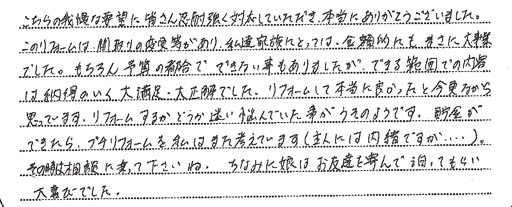 こちらの我儘な要望に皆さん忍耐強く対応していただき、本当にありがとうございました。
このリフォームは、間取りの変更等があり、私達家族にとっては、金額的にも、まさに大事業
でした。もちろん予算の都合でできない事もありましたが、できる範囲での内容
は納得のいく大満足・大正解でした。リフォームして本当に良かったと今更ながら
思っています。リフォームするかどうか迷い悩んでいた事がうそのようです。貯金が
できたら、プチリフォームを私はまた考えています(主人には内緒ですが…)。
その時は相談に乗って下さいね。ちなみに娘はお友達を呼んで泊ってもらい
大喜びでした。